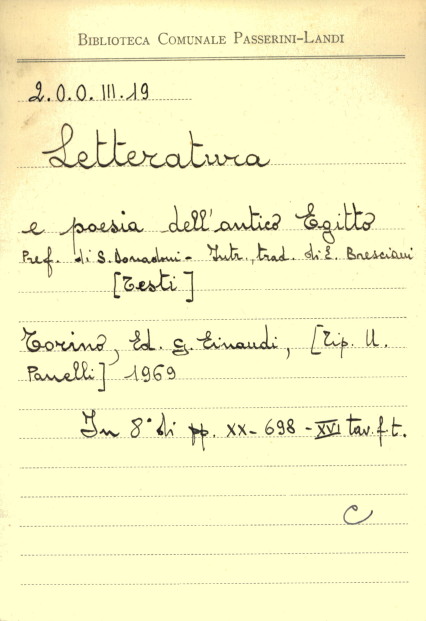 BIBLIOTECA COMUNALE PASSERINI-LANDI
2.0.0.III.19
Letteratura
e poesia dell'antico Egitto
Pref. di S. Donadoni - Intr., trad. di E. Bresciani
[Testi]
Torino, Ed. G. Einaudi, [Tip. U.
Panelli] 1969
In 8° di pp. XX-698-XVI tav.f.t.
C